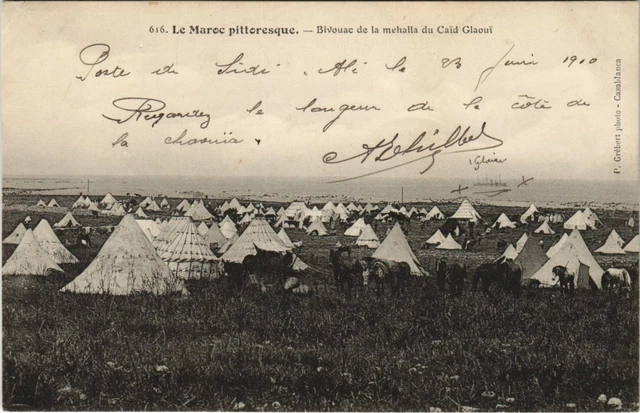 616. Le Maroc pittoresque. — Bivouac de la mehalla du Caïd Glaouï
Poste de Sidi Ali le 23 Juin 1910
Regardez le longeur de la côte de
la chaouïa.
P. Grébert photo - Casablanca